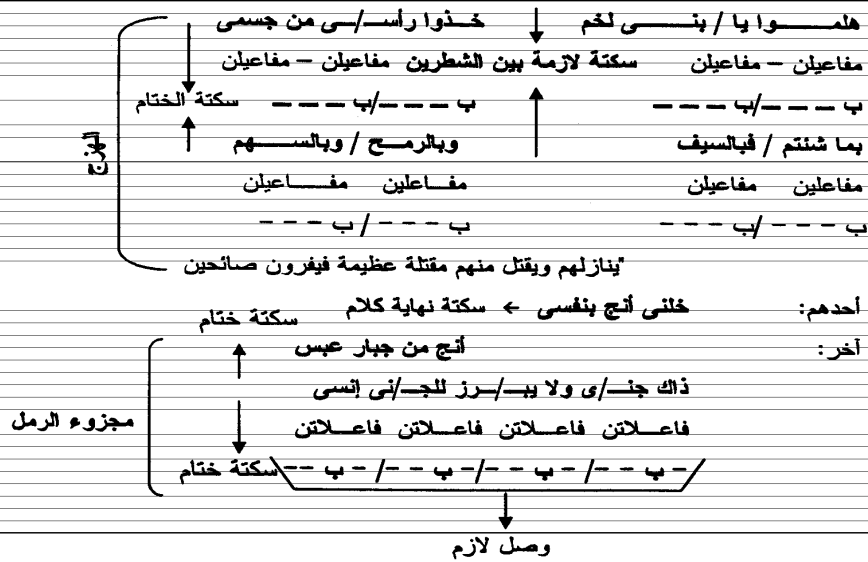 هلمـــوا يا / بنـــى لخم خـذوا رأســ/ـى من جسمى
مفاعيلن – مفاعيلن سكتة لازمة بين الشطرين مفاعيلن – مفاعيلن
ب – – –/ب – – – ب – – –/ب – – – سكتة الختام
الهزج
بما شئتم / فبالسيف وبالرمــح / وبالســـهم
مفاعلين مفاعيلن مفــاعلين مفـــاعيلن
ب – – – /ب – – – ب – – – / ب – – –
"ينازلهم ويقتل منهم مقتلة عظيمة فيفرون صائحين
أحدهم: خلنى أنج بنفسى ← سكتة نهاية كلام
سكتة ختام
آخر: أنج من جبار عبس
ذاك جنــ/ـى ولا يبــ/ـرز للجــ/ـنى إنسى
مجزوء الرمل
فاعـــلاتن فاعـــلاتن فاعـــلاتن فاعـــلاتن
– ب – – /– ب – –/– ب – –/– ب – – سكتة ختام
وصل لازم